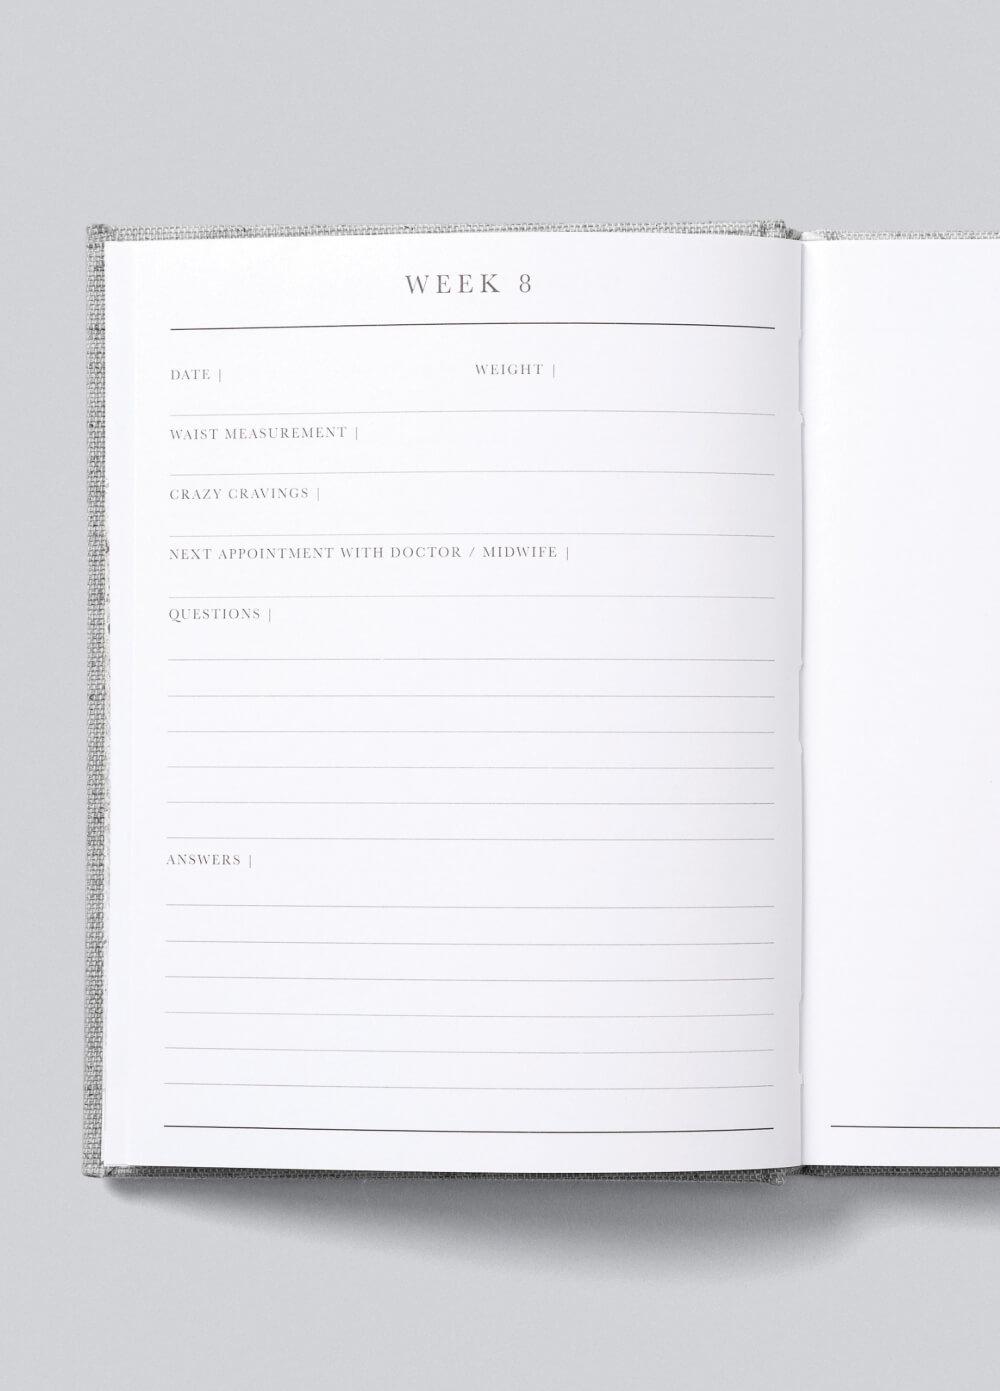 WEEK 8
DATE | WEIGHT |
WAIST MEASUREMENT |
CRAZY CRAVINGS |
NEXT APPOINTMENT WITH DOCTOR / MIDWIFE |
QUESTIONS |
ANSWERS |